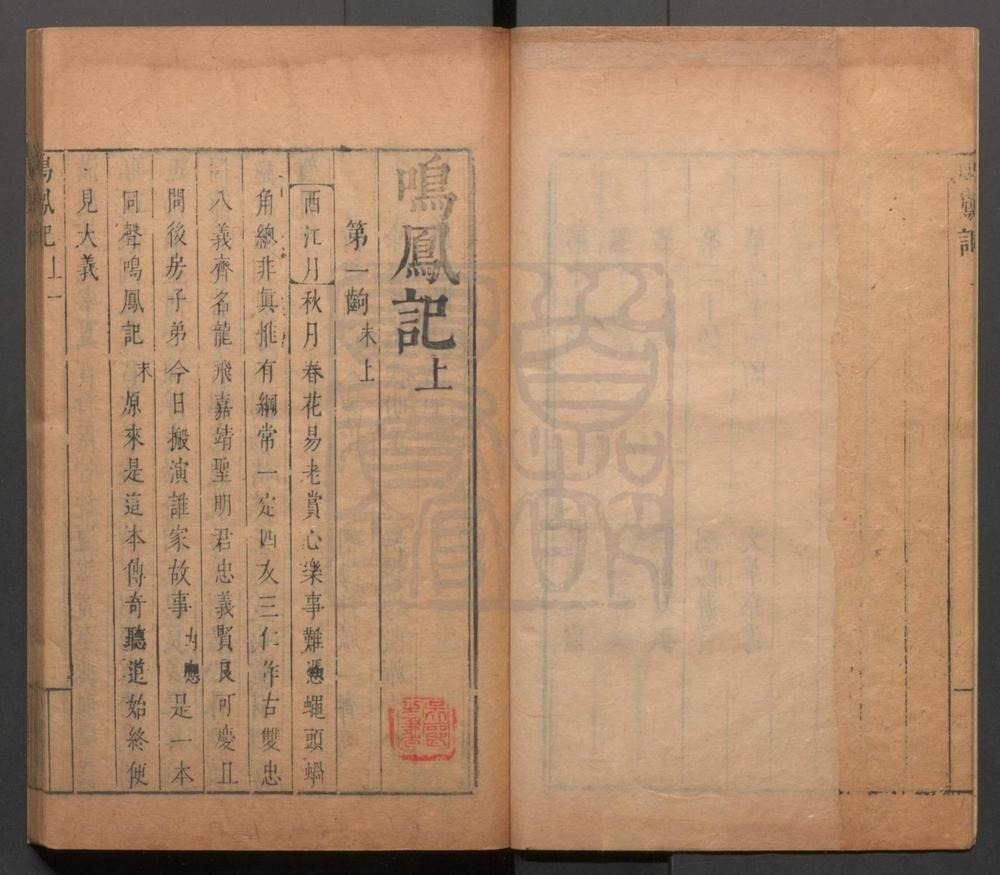 鳴鳳記上
第一齣 末上
西江月秋月春花易老賞心樂事難憑蠅頭蝸
角總非真惟有綱常一定四友三仁作古雙忠
八義齊名龍飛嘉靖聖明君忠義賢良可慶且
問後房子弟今日搬演誰家故事內應是一本
同聲鳴鳳記末原來是這本傳奇聽道始終便
見大義
鳴鳳記 上 一